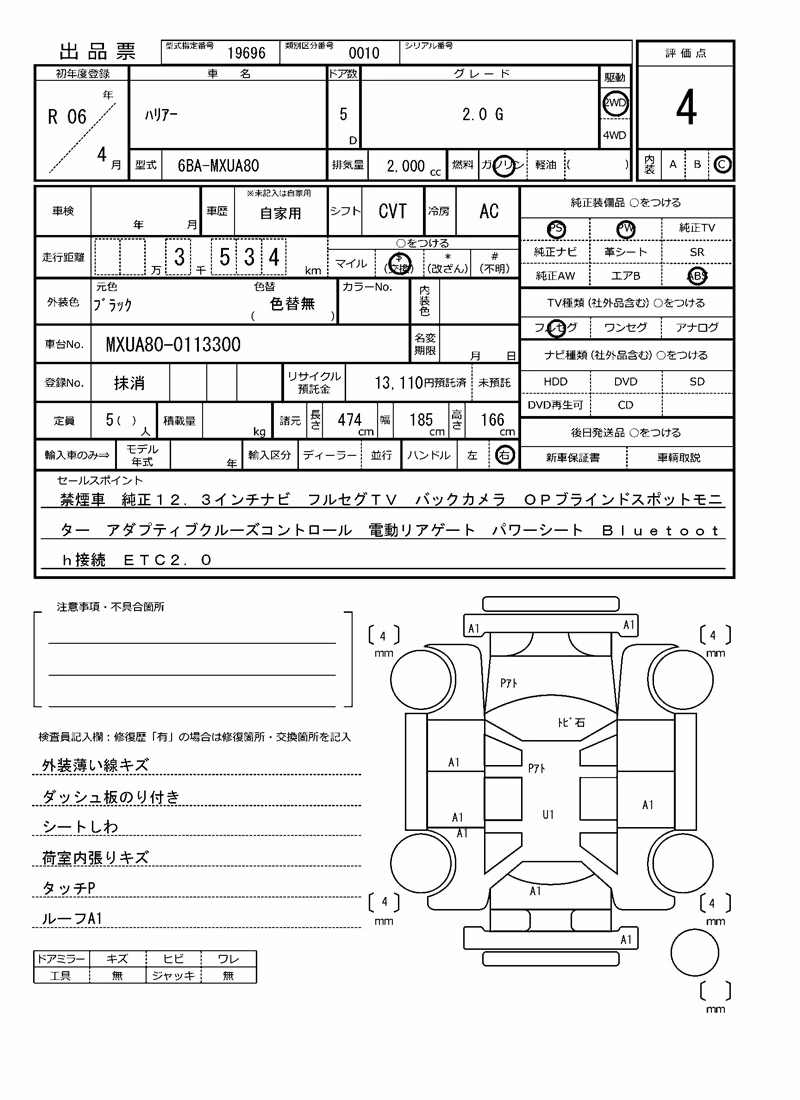 出品票 型式指定番号 19696 類別区分番号 0010 シリアル番号
評価点
4
内装 A B C
初年度登録 車名 ドア数 グレード 駆動
R 06 年 4 月 ハリアー 5 D 2.0 G 2WD 4WD
型式 6BA-MXUA80 排気量 2,000 cc 燃料 ガソリン 軽油 ( )
車検 年 月 車歴 ※未記入は自家用 自家用 シフト CVT 冷房 AC
走行距離 万 3 千 5 3 4 km ○をつける
マイル $(交換) *(改ざん) #(不明)
外装色 元色 ブラック 色替 ( 色替無 ) カラーNo. 内装色
車台No. MXUA80-0113300 名変期限 月 日
登録No. 抹消 リサイクル預託金 13,110円預託済 未預託
定員 5( )人 積載量 kg 諸元 長さ 474 cm 幅 185 cm 高さ 166 cm
輸入車のみ⇒ モデル年式 年 輸入区分 ディーラー 並行 ハンドル 左 右
純正装備品 ○をつける
PS PW 純正TV
純正ナビ 革シート SR
純正AW エアB ABS
TV種類(社外品含む)○をつける
フルセグ ワンセグ アナログ
ナビ種類(社外品含む)○をつける
HDD DVD SD
DVD再生可 CD
後日発送品 ○をつける
新車保証書 車輌取説
セールスポイント
禁煙車 純正12.3インチナビ フルセグTV バックカメラ OPブラインドスポットモニ
ター アダプティブクルーズコントロール 電動リアゲート パワーシート Bluetoot
h接続 ETC2.0
注意事項・不具合箇所
検査員記入欄:修復歴「有」の場合は修復箇所・交換箇所を記入
外装薄い線キズ
ダッシュ板のり付き
シートしわ
荷室内張りキズ
タッチP
ルーフA1
ドアミラー キズ ヒビ ワレ
工具 無 ジャッキ 無
A1 A1
4 mm
4 mm
Pアト
トビ石
A1
Pアト
A1
U1
A1
A1
A1
4 mm
4 mm
A1
mm